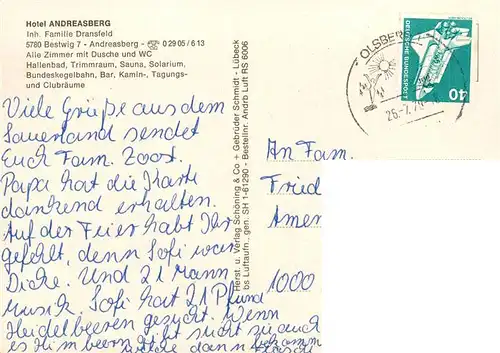 Hotel ANDREASBERG
Inh. Familie Dransfeld
5780 Bestwig 7 - Andreasberg - ☎ 0 29 05 / 6 13
Alle Zimmer mit Dusche und WC
Hallenbad, Trimmraum, Sauna, Solarium,
Bundeskegelbahn, Bar, Kamin-, Tagungs-
und Clubräume
Viele Grüße aus dem
Sauerland sendet
Euch Fam. Zoost.
Papa hat die Karte
dankend erhalten.
Auf der Feier habt Ihr
gefehlt, denn Sofi war
Dicke. Und 21 Mann
Musik. Sofi hat 21 Pfund
Heidelbeeren gesucht. Wenn
es Himbeern gibt sucht sie auch
welche dann
Herst. u. Verlag Schöning & Co + Gebrüder Schmidt - Lübeck
bs Luftaufn., gen. SH 1-61290 - Bestellnr. Andre Luft RS 6006
OLSBERG
26.-7.
DEUTSCHE BUNDESPOST
40
An Fam.
Fried
Amer
1000